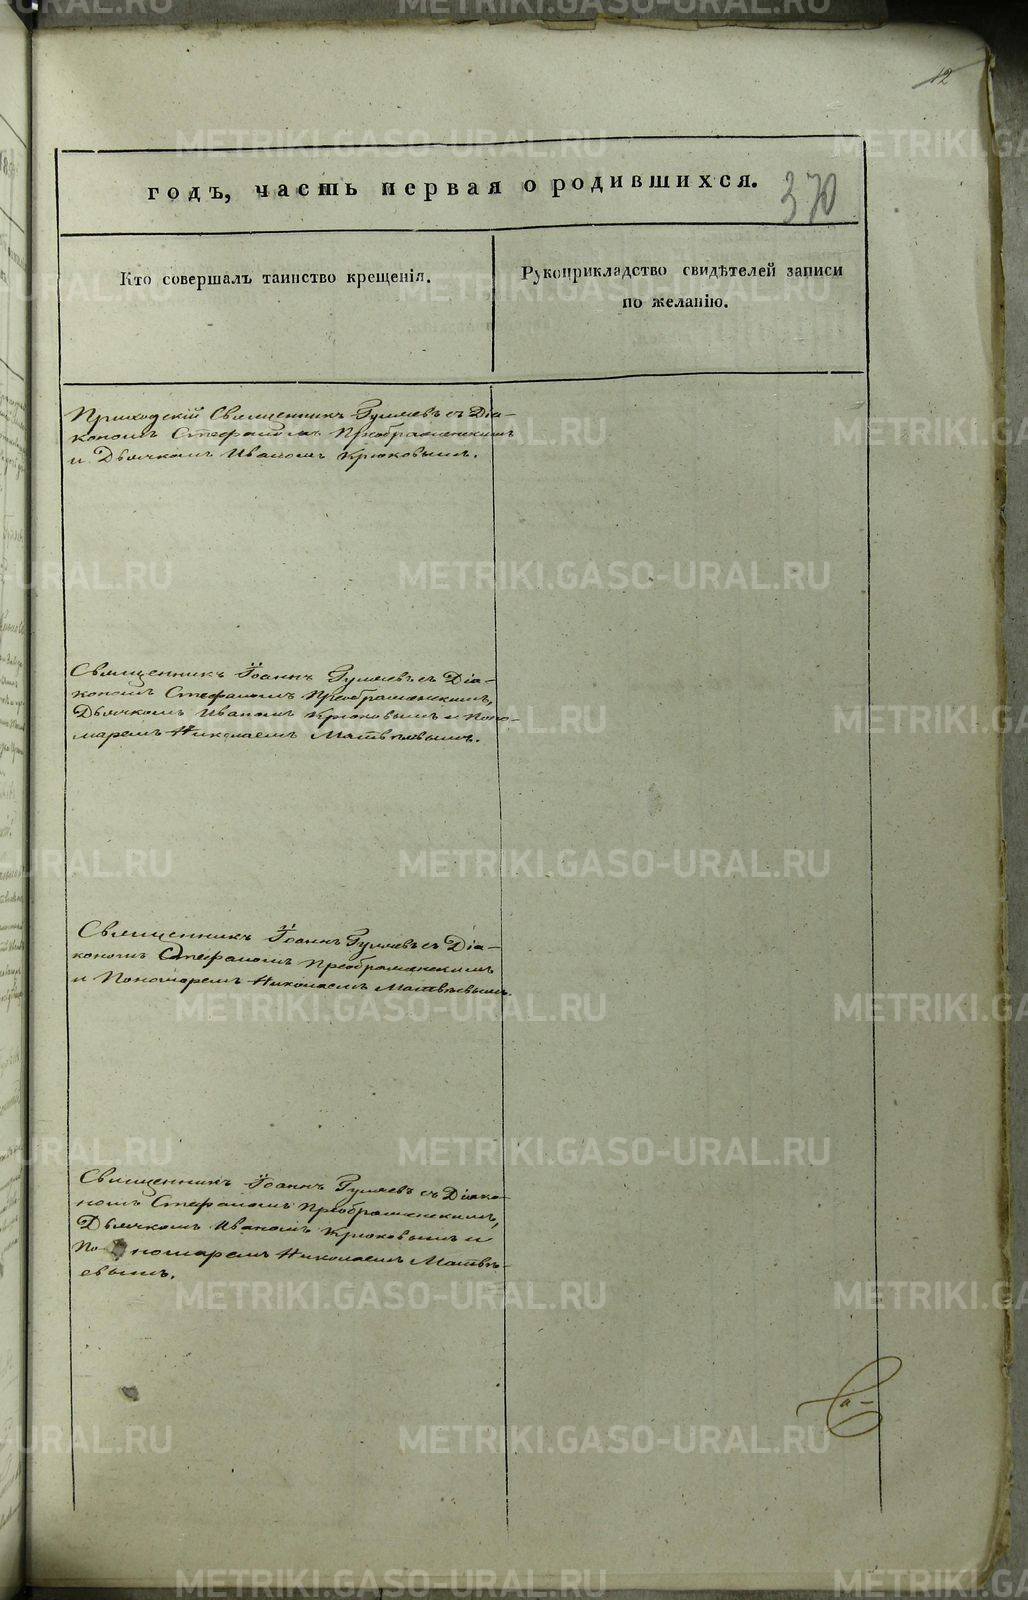 12
годъ, часть первая о родившихся.
370
Кто совершалъ таинство крещенія.
Рукоприкладство свидѣтелей записи
по желанію.
Приходскій Священникъ Гуляевъ съ Діа-
кономъ Стефаномъ Преображенскимъ
и Дьячкомъ Иваномъ Крюковымъ.
Священникъ Іоаннъ Гуляевъ съ Діа-
кономъ Стефаномъ Преображенскимъ,
Дьячкомъ Иваномъ Крюковымъ и Поно-
маремъ Николаемъ Матвѣевымъ.
Священникъ Іоаннъ Гуляевъ съ Діа-
кономъ Стефаномъ Преображенскимъ
и Пономаремъ Николаемъ Матвѣевымъ.
Священникъ Іоаннъ Гуляевъ съ Діако-
номъ Стефаномъ Преображенскимъ,
Дьячкомъ Иваномъ Крюковымъ и
По-номаремъ Николаемъ Матвѣ-
евымъ.
METRIKI.GASO-URAL.RU